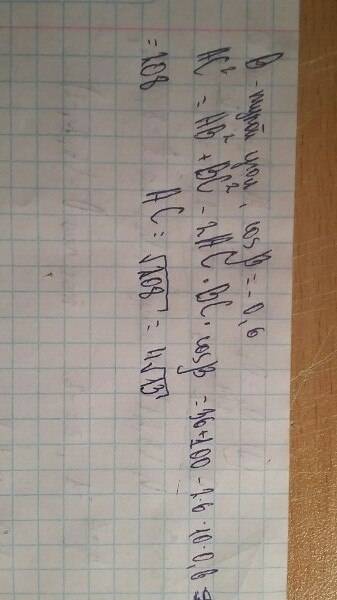 B - тупой угол, cos B = -0,6
AC² = AB² + BC² - 2AC · BC · cos B = 36+100 - 2·6·10·0,6 =
= 208    AC = √208 = 4√13